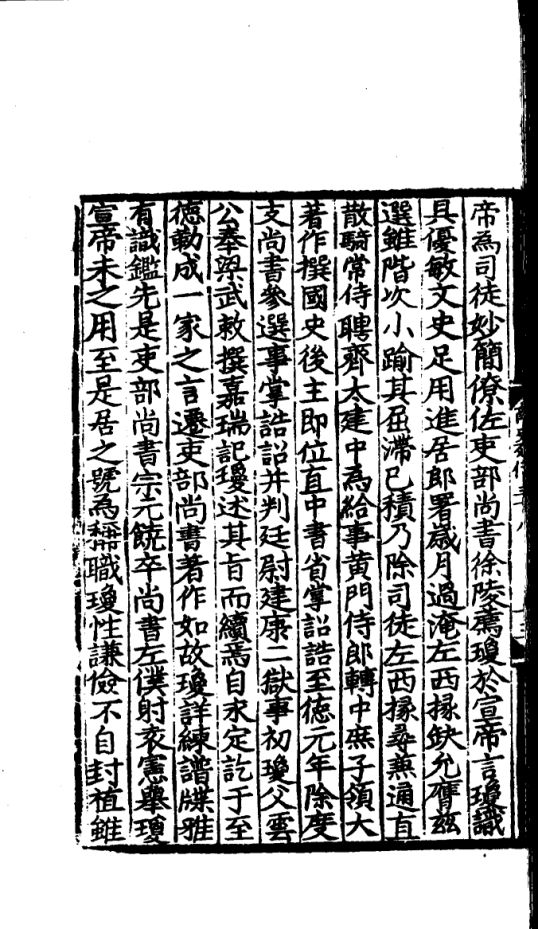 帝為司徒妙簡僚佐吏部尚書徐陵薦瓊於宣帝言瓊識
具優敏文史足用進居郎署歲月過淹左西掾缺允膺茲
選雖階次小踰其屈滯已積乃除司徒左西掾尋兼通直
散騎常侍聘齊太建中為給事黃門侍郎轉中庶子領大
著作撰國史後主即位直中書省掌詔誥至德元年除度
支尚書參選事掌誥詔并判廷尉建康二獄事初瓊父雲
公奉梁武敕撰嘉瑞記瓊述其旨而續焉自永定訖于至
德勒成一家之言遷吏部尚書著作如故瓊詳練譜牒雅
有識鑑先是吏部尚書宗元饒卒尚書左僕射袁憲舉瓊
宣帝未之用至是居之號為稱職瓊性謙儉不自封植雖